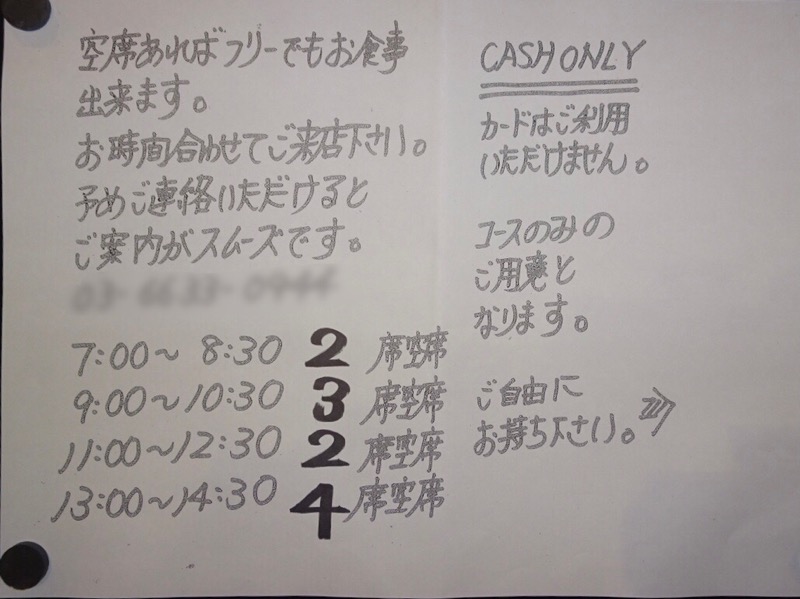 空席あればフリーでもお食事
出来ます。
お時間合わせてご来店下さい。
予めご連絡いただけると
ご案内がスムーズです。
7:00～8:30 2席空席
9:00～10:30 3席空席
11:00～12:30 2席空席
13:00～14:30 4席空席
CASH ONLY
カードはご利用
いただけません。
コースのみの
ご用意と
なります。
ご自由に
お持ち下さい。